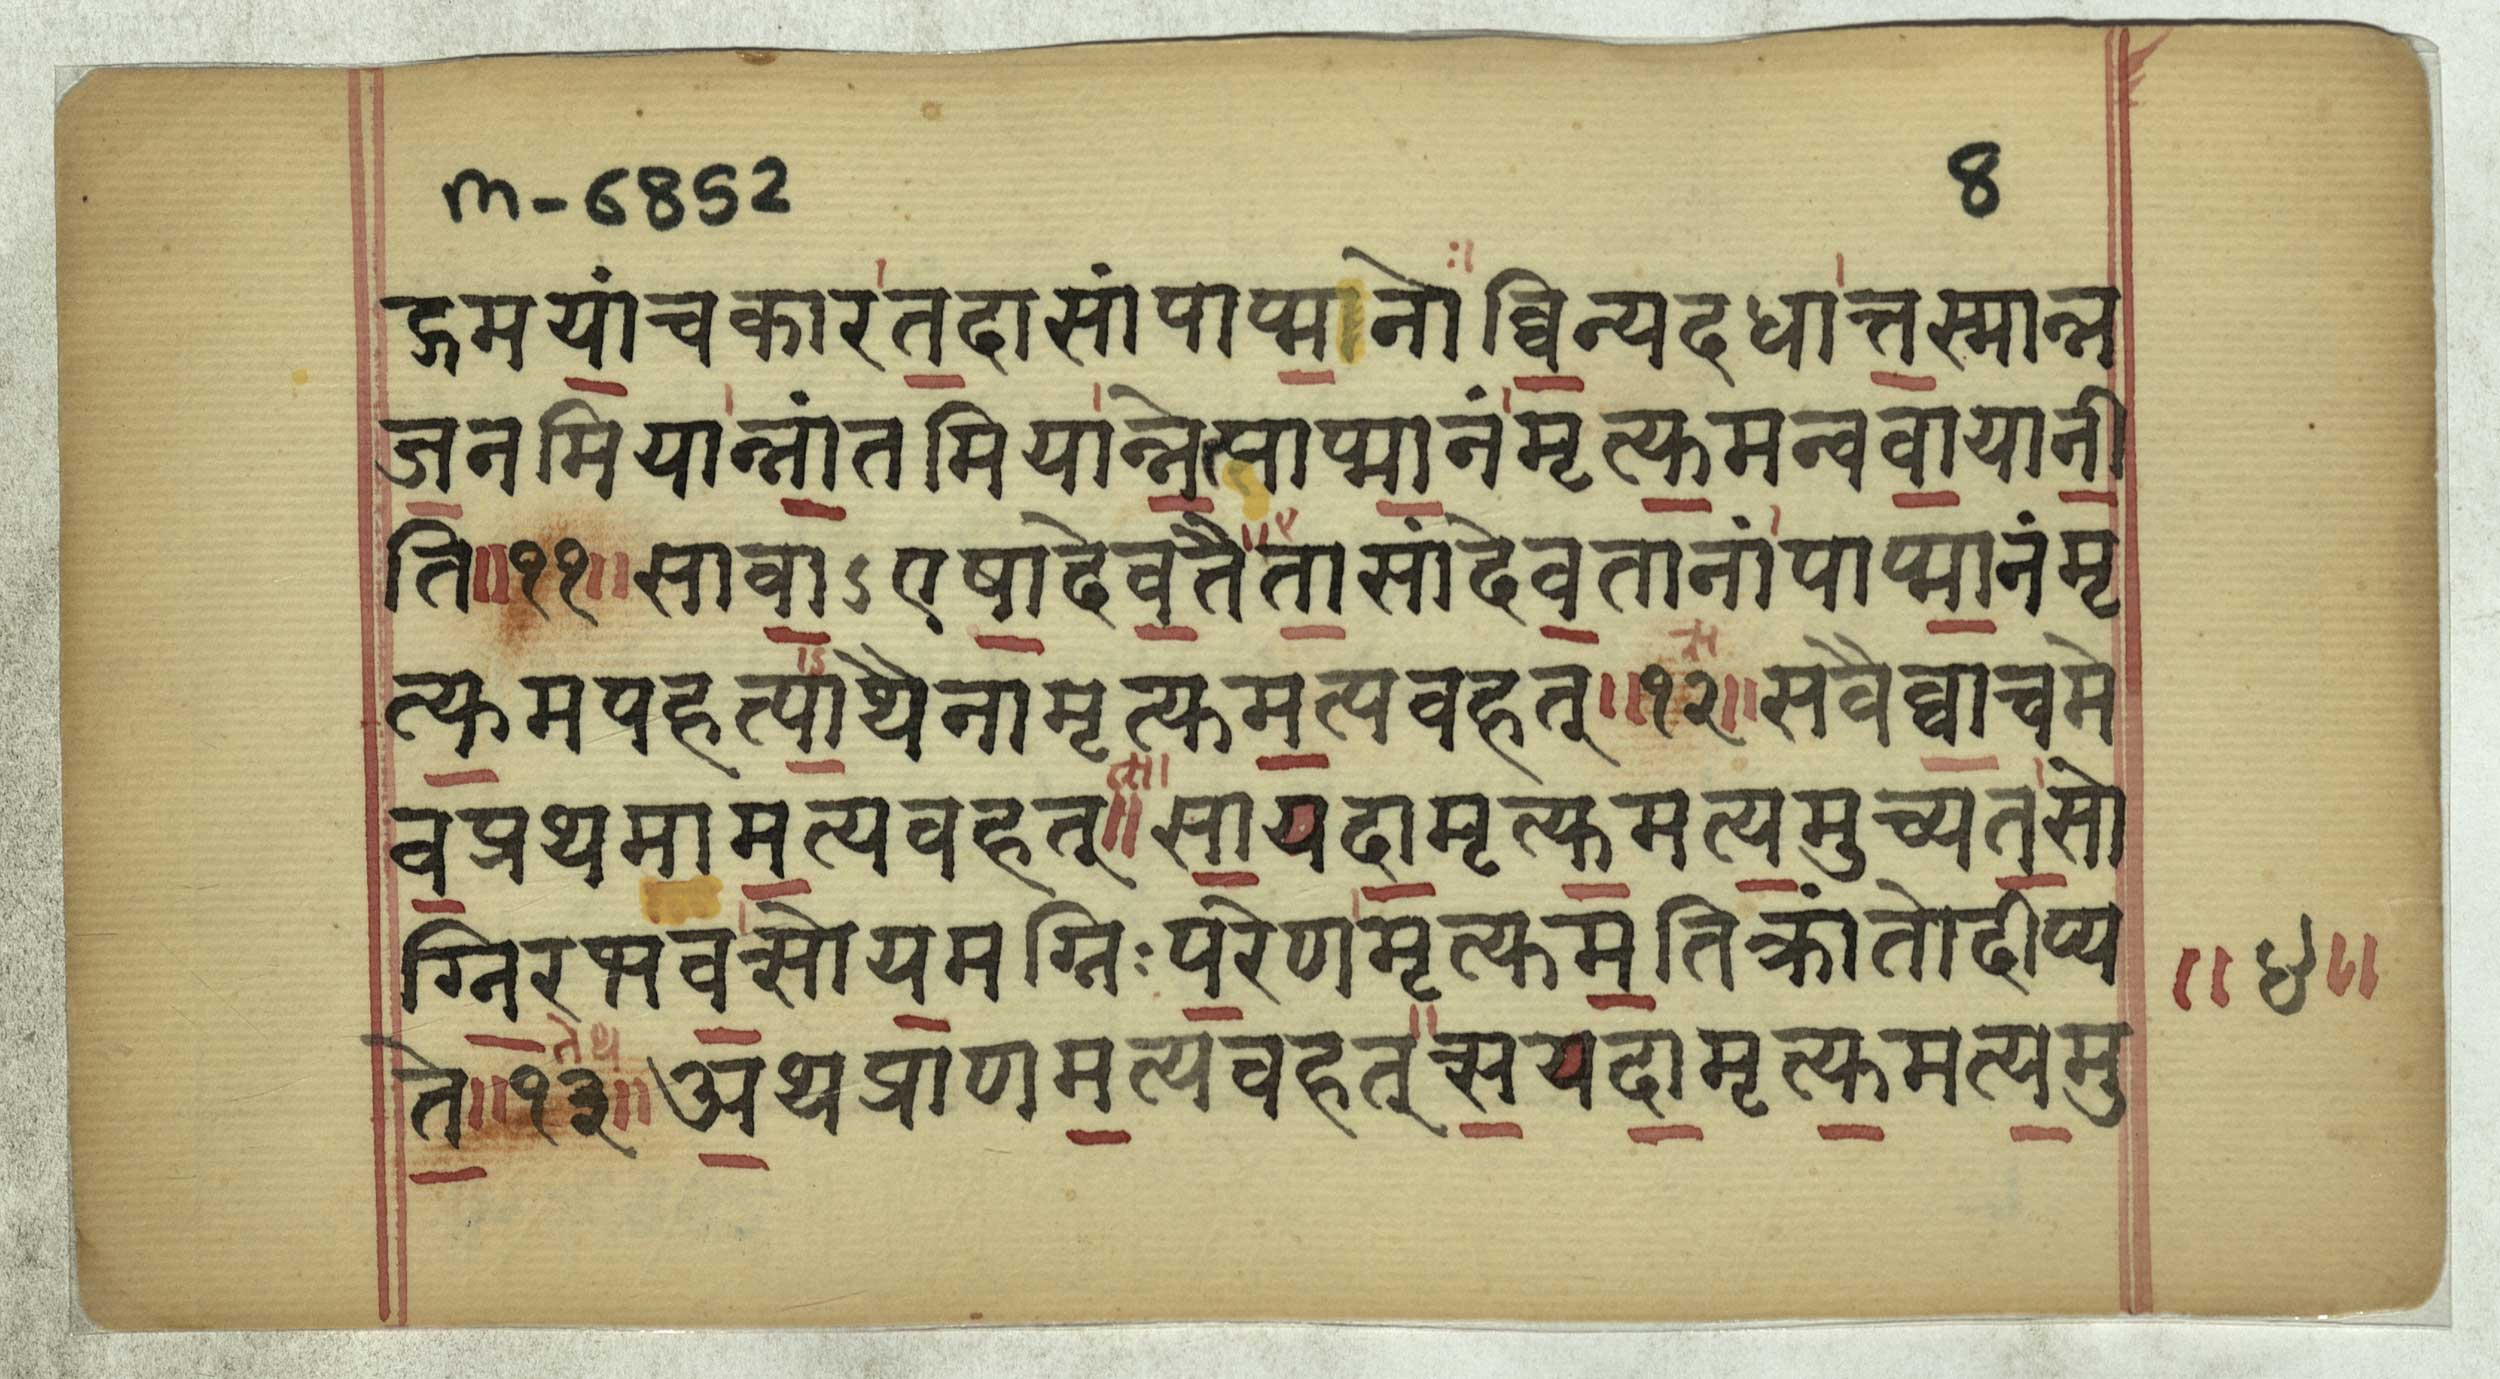 m-6852
8
द्गमयांचकारतदासांपाप्मानो व्विन्यदधात्तस्मान्न
जनमियान्नांतमियान्नेत्पाप्मानंमृत्युमन्ववायानी
ति॥११॥सावाऽएषादेवतैतासांदेवतानांपाप्मानंमृ
त्युमपहत्याथैनामृत्युमत्यवहत्॥१२॥सवैव्वाचमे
वप्रथमामत्यवहत्॥सायदामृत्युमत्यमुच्यतसो
ग्निरभवत्सोयमग्निःपरेणमृत्युमतिक्रांतोदीप्य
॥४॥
ते॥१३॥अथप्राणमत्यवहत्सयदामृत्युमत्यमु